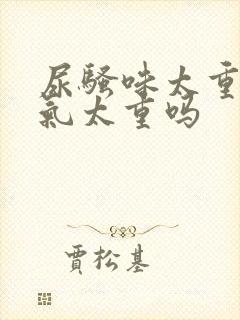 尿骚味太重
氣太重吗
賈松基